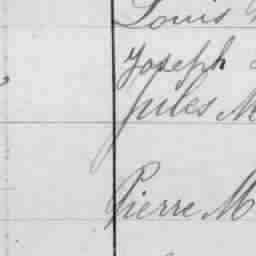 Louis
Joseph
Jules M
Pierre M